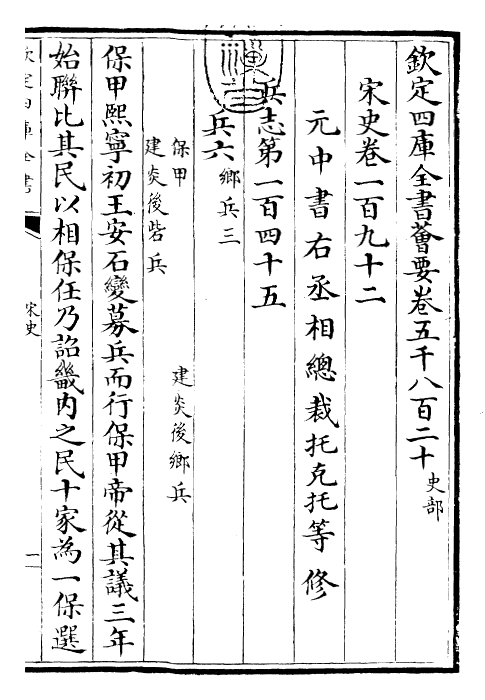 欽定四庫全書薈要卷五千八百二十 史部
宋史卷一百九十二
元中書右丞相總裁托克托等修
兵志第一百四十五
兵六 鄉兵三
保甲 建炎後鄉兵
建炎後砦兵
保甲熙寧初王安石變募兵而行保甲帝從其議三年
始聯比其民以相保任乃詔畿内之民十家為一保選
欽定四庫全書
宋史
一